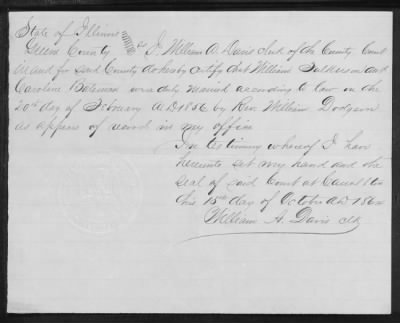 State of Illinois
Green County ss I William A. Davis Clerk of the County Court
in and for said County do hereby certify that William Fulkerson and
Caroline Bateman was duly married according to law on the
20th day of February A.D. 1856 by Rev. William Dodgson
as appears of record in my office
In testimony whereof I have
hereunto set my hand and the
seal of said Court at Carrollton
this 15th day of October A.D. 186
William A. Davis Clk